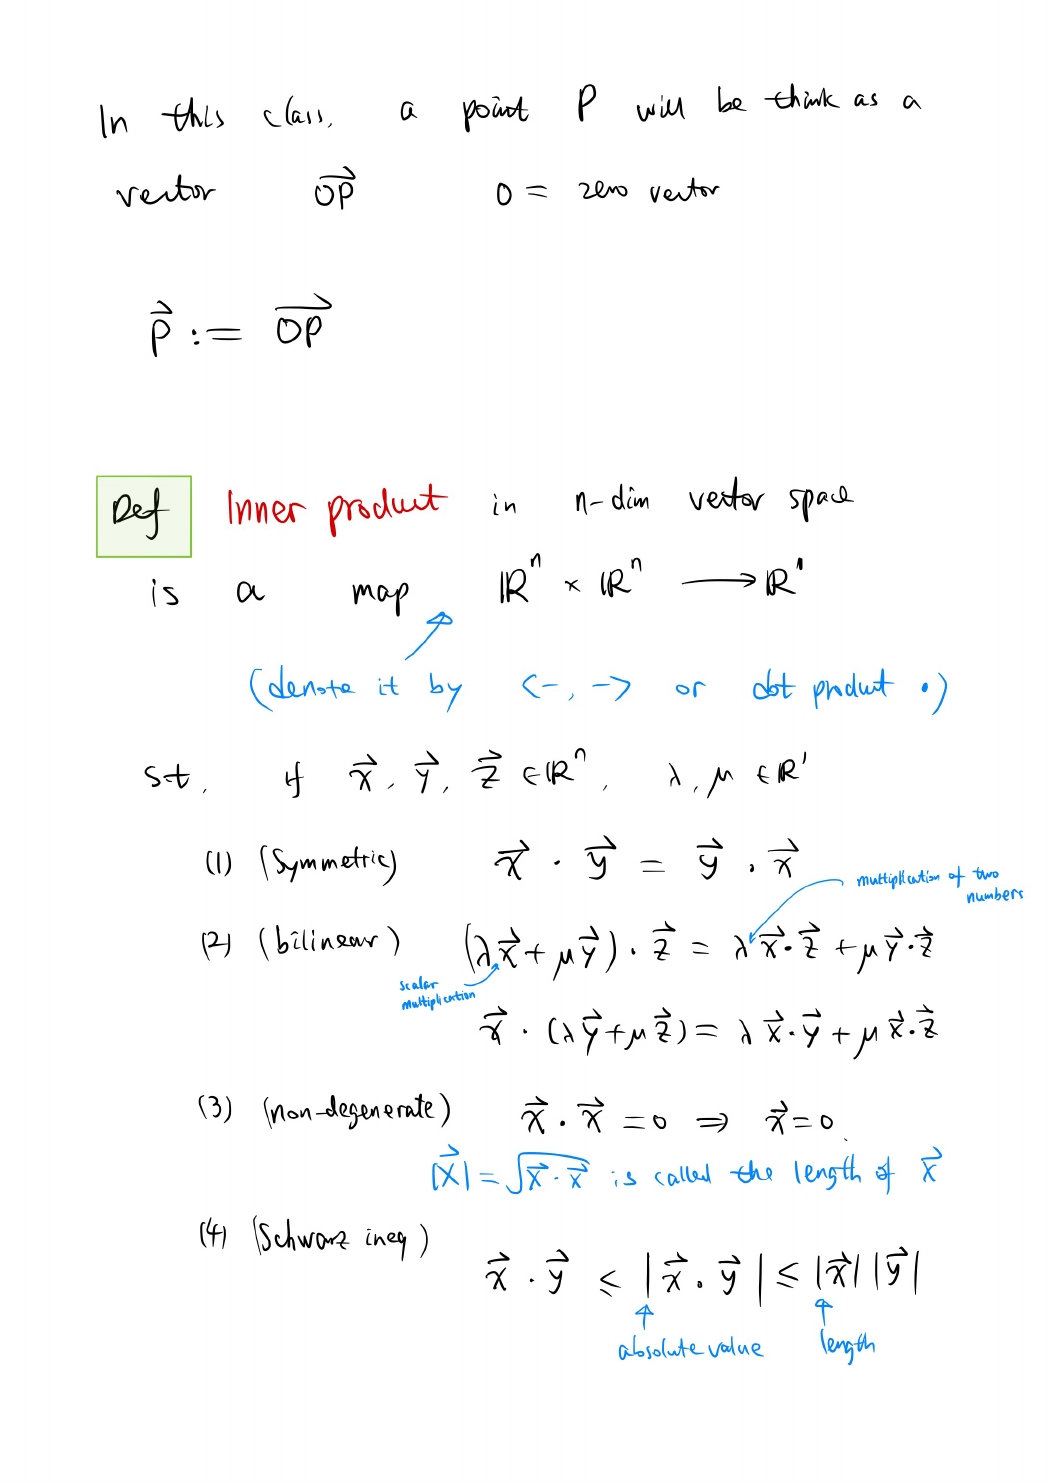 In this class, a point P will be think as a
vector $\overrightarrow{OP}$ 0 = zero vector
$\vec{P} := \overrightarrow{OP}$
Def Inner product in n-dim vector space
is a map $\mathbb{R}^n \times \mathbb{R}^n \longrightarrow \mathbb{R}^1$
(denote it by <-, -> or dot product •)
s.t. if $\vec{x}, \vec{y}, \vec{z} \in \mathbb{R}^n$, $\lambda, \mu \in \mathbb{R}^1$
(1) (Symmetric) $\vec{x} \cdot \vec{y} = \vec{y} \cdot \vec{x}$
multiplication of two
numbers
(2) (bilinear) $(\lambda \vec{x} + \mu \vec{y}) \cdot \vec{z} = \lambda \vec{x} \cdot \vec{z} + \mu \vec{y} \cdot \vec{z}$
scalar
multiplication
$\vec{x} \cdot (\lambda \vec{y} + \mu \vec{z}) = \lambda \vec{x} \cdot \vec{y} + \mu \vec{x} \cdot \vec{z}$
(3) (non-degenerate) $\vec{x} \cdot \vec{x} = 0 \Rightarrow \vec{x} = 0$.
$|\vec{x}| = \sqrt{\vec{x} \cdot \vec{x}}$ is called the length of $\vec{x}$
(4) (Schwarz ineq) $\vec{x} \cdot \vec{y} \leq |\vec{x} \cdot \vec{y}| \leq |\vec{x}| |\vec{y}|$
absolute value length